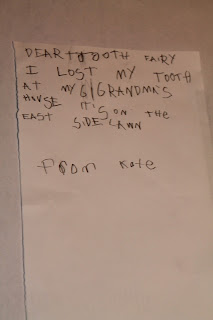 DEAR TOOTH FAIRY
I LOST MY TOOTH
AT MY G|GRANDMA'S
HOUSE IT'S ON THE
EAST SIDE LAWN
From Kate